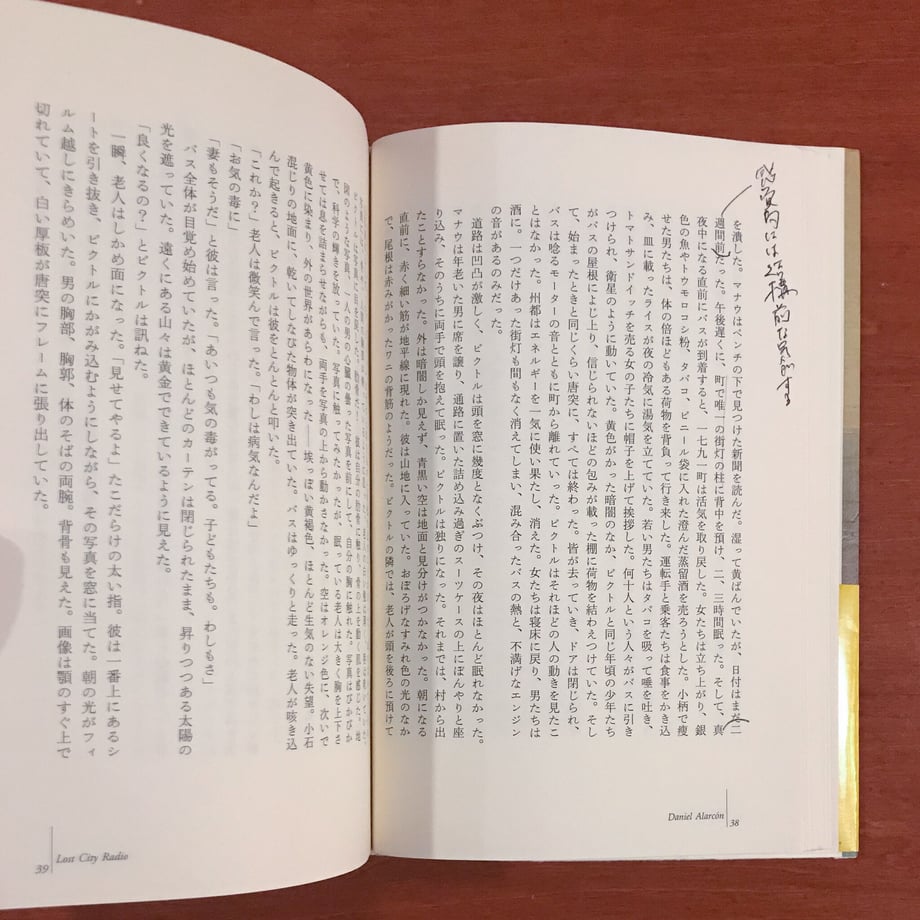 感覚的には結構前な気がする
を潰した。マナウはベンチの下で見つけた新聞を読んだ。湿って黄ばんでいたが、日付はまだ二
週間前だった。午後遅くに、町で唯一の街灯の柱に背中を預け、二、三時間眠った。そして、真
夜中になる直前にバスが到着すると、一七九一町は活気を取り戻した。女たちは立ち上がり、銀
色の魚やトウモロコシ粉、タバコ、ビニール袋に入れた澄んだ蒸留酒を売ろうとした。小柄で瘦
せた男たちは、体の倍ほどもある荷物を背負って行き来した。運転手と乗客たちは食事をかき込
み、皿に載ったライスが夜の冷気に湯気を立てていた。若い男たちはタバコを吸って唾を吐き、
トマトサンドイッチを売る女の子たちに帽子を上げて挨拶した。何十人という人々がバスに引き
つけられ、衛星のように動いていた。黄色がかった暗闇のなか、ビクトルと同じ年頃の少年たち
がバスの屋根によじ上り、信じられないほどの包みが載った棚に荷物を結わえつけていた。そし
て、始まったときと同じくらい唐突に、すべては終わった。皆が去っていき、ドアは閉じられ、
バスは唸るモーターの音とともに町から離れていった。ビクトルはそれほどの人の動きを見たこ
とはなかった。州都はエネルギーを一気に使い果たし、消えた。女たちは寝床に戻り、男たちは
酒に。一つだけあった街灯も間もなく消えてしまい、混み合ったバスの熱と、不満げなエンジン
の音があるのみだった。
道路は凹凸が激しく、ビクトルは頭を窓に幾度となくぶつけ、その夜はほとんど眠れなかった。
マナウは年老いた男に席を譲り、通路に置いた詰め込み過ぎのスーツケースの上にぼんやりと座
り込み、そのうちに両手で頭を抱えて眠った。ビクトルは独りになった。それまでは、村から出
たことすらなかった。外は暗闇しか見えず、青黒い空は地面と見分けがつかなかった。朝になる
直前に、赤く細い筋が地平線に現れた。彼は山地に入っていた。おぼろげなすみれ色の光のなか
で、尾根は赤みがかったワニの背筋のようだった。ビクトルの隣では、老人が頭を後ろに預けて
Daniel Alarcón
38
で、科学の輝きを放っていた。写真に触ってみたかったが、眠っている老人は大きく胸を上下さ
せては息を詰まらせながらも、両手を写真の上から動かさなかった。空はオレンジ色に、次いで
黄色に染まり、外の世界があらわになった――埃っぽい黄褐色、ほとんど生気のない失望。小石
混じりの地面に、乾いてしなびた物体が突き出ていた。バスはゆっくりと走った。老人が咳き込
んで起きると、ビクトルは彼をとんとんと叩いた。
「これか?」老人は微笑んで言った。「わしは病気なんだよ」
「お気の毒に」
「妻もそうだ」と彼は言った。「あいつも気の毒がってる。子どもたちも。わしもさ」
バス全体が目覚め始めていたが、ほとんどのカーテンは閉じられたまま、昇りつつある太陽の
光を遮っていた。遠くにある山々は黄金でできているように見えた。
「良くなるの?」とビクトルは訊ねた。
一瞬、老人はしかめ面になった。「見せてやるよ」たこだらけの太い指。彼は一番上にあるシ
ートを引き抜き、ビクトルにかがみ込むようにしながら、その写真を窓に当てた。朝の光がフィ
ルム越しにきらめいた。男の胸部、胸郭、体のそばの両腕。背骨も見えた。画像は顎のすぐ上で
切れていて、白い厚板が唐突にフレームに張り出していた。
39
Lost City Radio